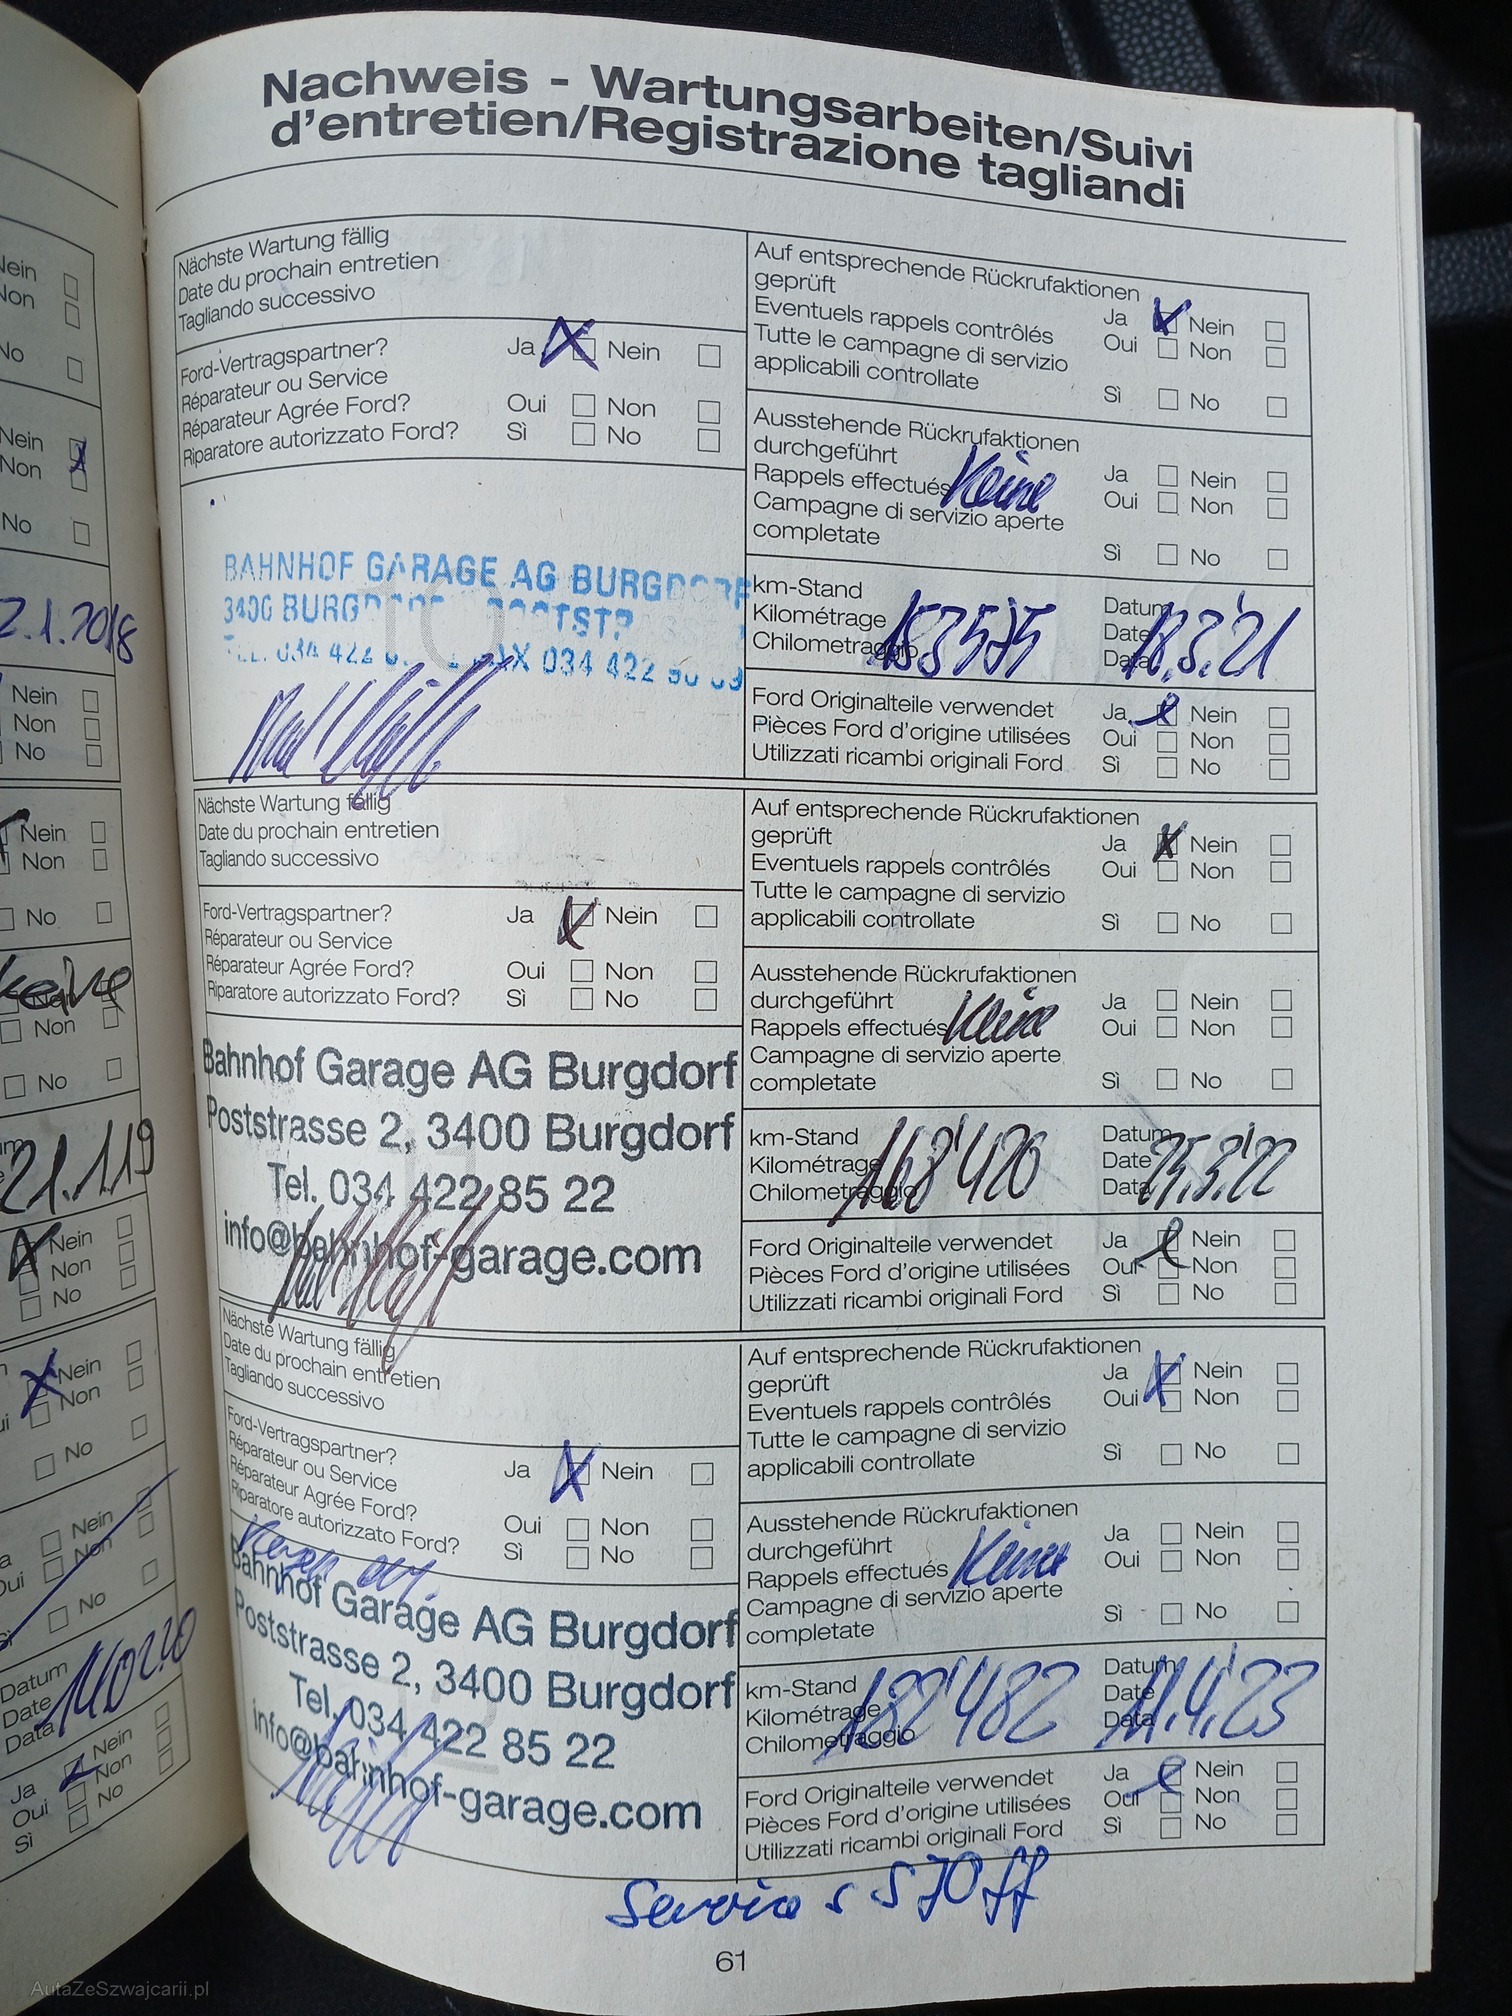 Nachweis - Wartungsarbeiten/Suivi
d'entretien/Registrazione tagliandi
Nächste Wartung fällig
Date du prochain entretien
Tagliando successivo
Ford-Vertragspartner?
Réparateur ou Service
Réparateur Agrée Ford?
Riparatore autorizzato Ford?
Ja Nein
Oui Non
Sì No
BAHNHOF GARAGE AG BURGDORF
3400 BURGDORF
034 422 FAX 034 422
Auf entsprechende Rückrufaktionen
geprüft
Eventuels rappels contrôlés
Tutte le campagne di servizio
applicabili controllate
Ja Nein
Oui Non
Sì No
Ausstehende Rückrufaktionen
durchgeführt
Rappels effectués Keine
Campagne di servizio aperte
completate
Ja Nein
Oui Non
Sì No
km-Stand
Kilométrage
Chilometraggio
153575
Datum
Date
Data
18.3.'21
Ford Originalteile verwendet
Pièces Ford d'origine utilisées
Utilizzati ricambi originali Ford
Ja Nein
Oui Non
Sì No
Nächste Wartung fällig
Date du prochain entretien
Tagliando successivo
Ford-Vertragspartner?
Réparateur ou Service
Réparateur Agrée Ford?
Riparatore autorizzato Ford?
Ja Nein
Oui Non
Sì No
Bahnhof Garage AG Burgdorf
Poststrasse 2, 3400 Burgdorf
Tel. 034 422 85 22
info@bahnhof-garage.com
Auf entsprechende Rückrufaktionen
geprüft
Eventuels rappels contrôlés
Tutte le campagne di servizio
applicabili controllate
Ja Nein
Oui Non
Sì No
Ausstehende Rückrufaktionen
durchgeführt
Rappels effectués Keine
Campagne di servizio aperte
completate
Ja Nein
Oui Non
Sì No
km-Stand
Kilométrage
Chilometraggio
168'420
Datum
Date
Data
25.3.'22
Ford Originalteile verwendet
Pièces Ford d'origine utilisées
Utilizzati ricambi originali Ford
Ja Nein
Oui Non
Sì No
Nächste Wartung fällig
Date du prochain entretien
Tagliando successivo
Ford-Vertragspartner?
Réparateur ou Service
Réparateur Agrée Ford?
Riparatore autorizzato Ford?
Ja Nein
Oui Non
Sì No
Bahnhof Garage AG Burgdorf
Poststrasse 2, 3400 Burgdorf
Tel. 034 422 85 22
info@bahnhof-garage.com
Auf entsprechende Rückrufaktionen
geprüft
Eventuels rappels contrôlés
Tutte le campagne di servizio
applicabili controllate
Ja Nein
Oui Non
Sì No
Ausstehende Rückrufaktionen
durchgeführt
Rappels effectués Keine
Campagne di servizio aperte
completate
Ja Nein
Oui Non
Sì No
km-Stand
Kilométrage
Chilometraggio
182'482
Datum
Date
Data
11.4.'23
Ford Originalteile verwendet
Pièces Ford d'origine utilisées
Utilizzati ricambi originali Ford
Ja Nein
Oui Non
Sì No
61
Nein
Non
No
Nein
Non
No
2.1.2018
Nein
Non
No
Nein
Non
No
keine
Non
No
21.1.19
Nein
Non
No
Nein
Non
No
Nein
Oui Non
No
Datum
Date
Data
14.02.20
Ja Nein
Oui Non
Sì No
AutaZeSzwajcarii.pl